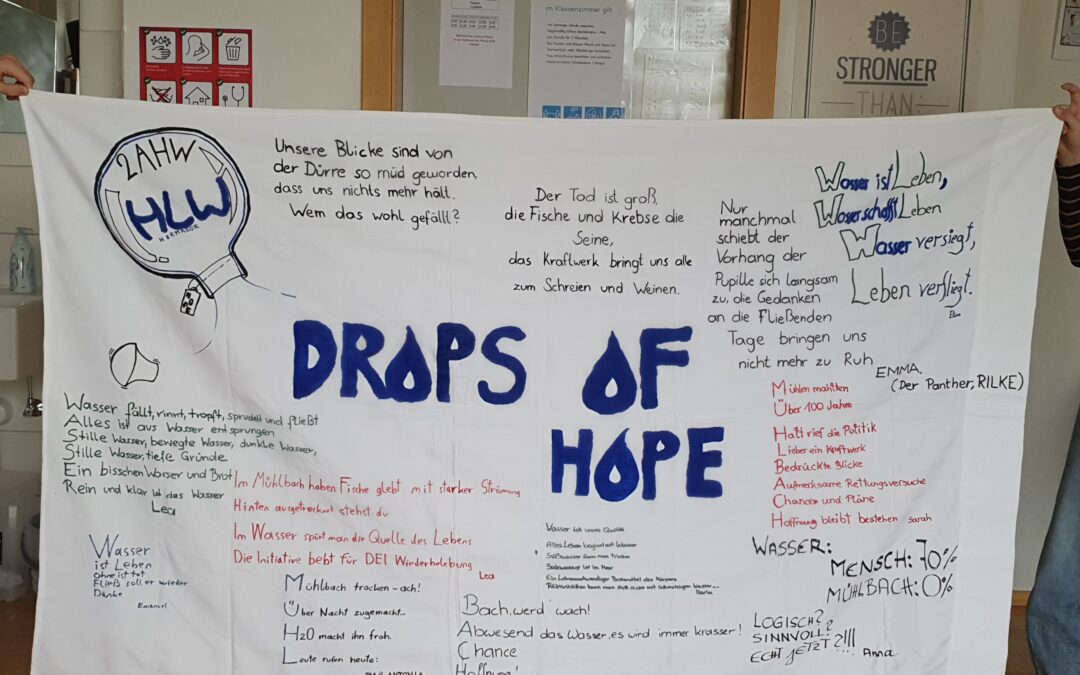 Im Klassenzimmer gilt
BE
STRONGER
THAN
2AHW
HLW
HERMAGOR
HOPE
Unsere Blicke sind von
der Dürre so müd geworden,
dass uns nichts mehr hält.
Wem das wohl gefällt?
Der Tod ist groß,
die Fische und Krebse die
Seine,
das Kraftwerk bringt uns alle
zum Schreien und Weinen.
Nur
manchmal
schiebt der
Vorhang der
Pupille sich langsam
zu, die Gedanken
an die Fließenden
Tage bringen uns
nicht mehr zu Ruh
EMMA,
(Der Panther, RILKE)
Wasser ist Leben,
Wasser schafft Leben
Wasser versiegt,
Leben verfliegt.
DROPS OF
HOPE
Wasser fällt, rinnt, tropft, sprudelt und fließt
Alles ist aus Wasser entsprungen
Stille Wasser, bewegte Wasser, dunkle Wasser,
Stille Wasser, tiefe Gründe
Ein bisschen Wasser und Brot
Rein und klar ist das Wasser
Lea
Im Mühlbach haben Fische glebt mit starker Strömung
Hinten ausgetrocknet stehst du
Im Wasser spürt man die Quelle des Lebens
Die Initiative bebt für DEI Wiederbelebung
Lea
Mühlen mahlten
Über 100 Jahre
Halt rief die Politik
Lieber ein Kraftwerk
Bedrückte Blicke
Aufmerksame Rettungsversuche
Chancen und Pläne
Hoffnung bleibt bestehen Sarah
Wasser
ist Leben
ohne ist tot
Fließ soll er wieder
Danke
Emanuel
Mühlbach trocken - ach!
Über Nacht zugemacht...
H2O macht ihn froh.
Leute rufen heute:
Wasser ist unsre Quelle
Alles Leben beginnt mit Wasser
Süßwasser kann man trinken
Salzwasser ist im Meer
Ein Lebensnotwendiger Bestandteil des Körpers
Bach, werd' wach!
Abwesend das Wasser, es wird immer krasser!
Chance
Hoffnung!
WASSER:
MENSCH: 70%
MÜHLBACH: 0%
LOGISCH?
SINNVOLL?
ECHT JETZT?!!!
Anna